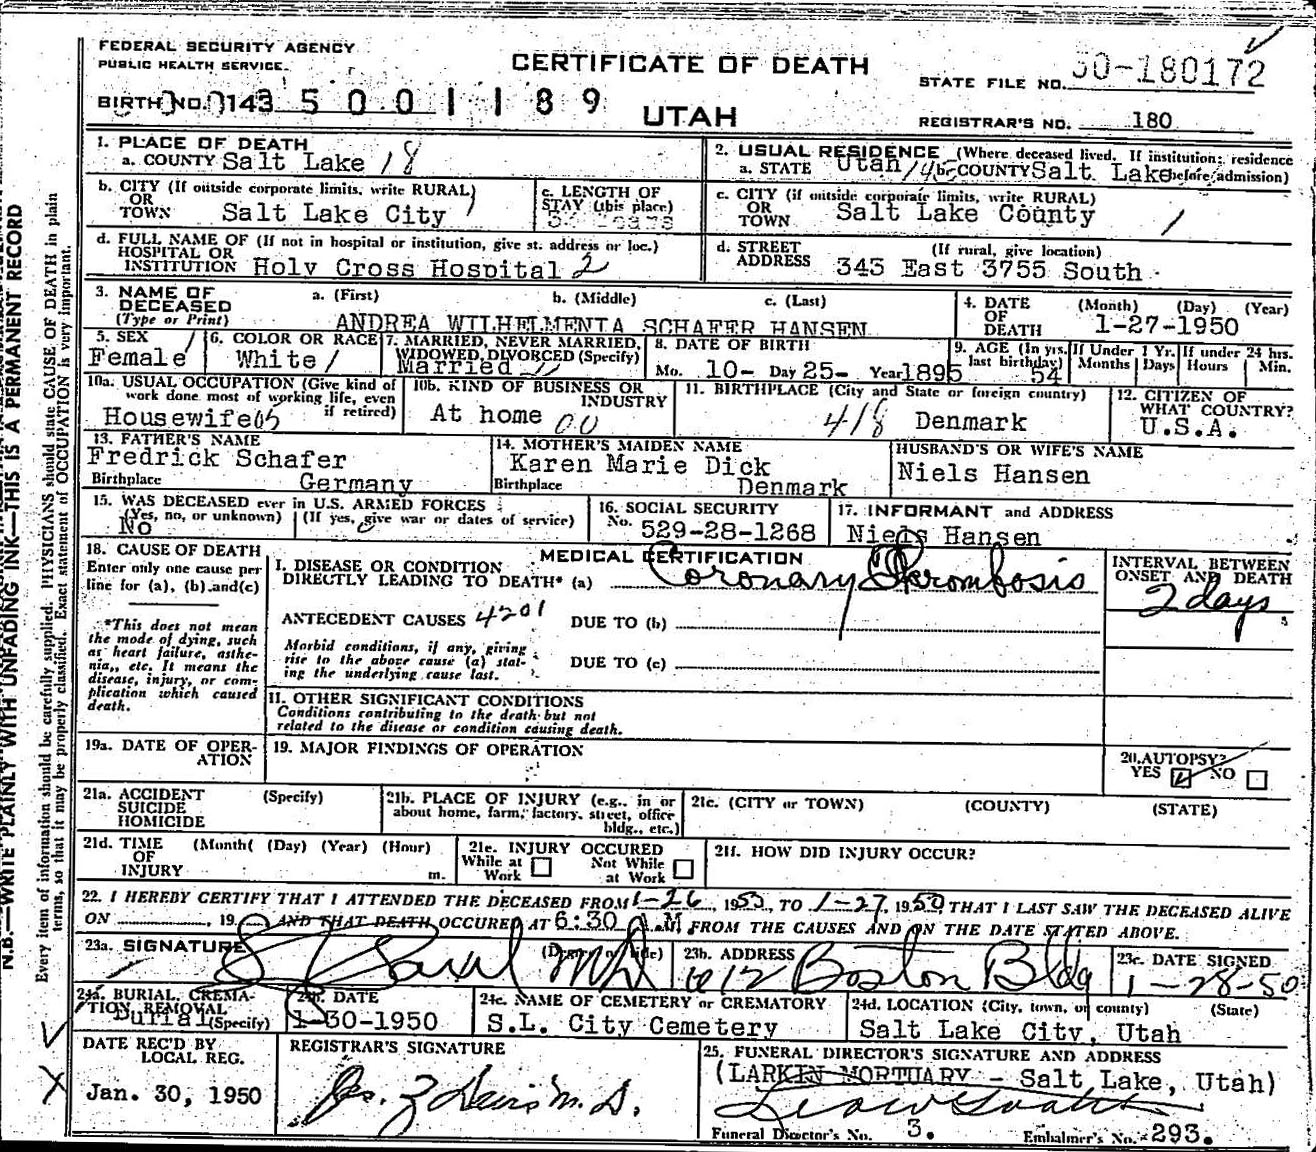 FEDERAL SECURITY AGENCY
PUBLIC HEALTH SERVICE.
CERTIFICATE OF DEATH
UTAH
STATE FILE NO. 50-180172
BIRTH NO. 143 5001189
REGISTRAR'S NO. 180
1. PLACE OF DEATH
a. COUNTY Salt Lake 18
2. USUAL RESIDENCE (Where deceased lived. If institution: residence before admission)
a. STATE Utah b. COUNTY Salt Lake
b. CITY (If outside corporate limits, write RURAL)
OR
TOWN Salt Lake City
c. LENGTH OF
STAY (this place)
c. CITY (if outside corporate limits, write RURAL)
OR
TOWN Salt Lake County
d. FULL NAME OF (If not in hospital or institution, give st. address or loc.)
HOSPITAL OR
INSTITUTION Holy Cross Hospital 2
d. STREET (If rural, give location)
ADDRESS 343 East 3755 South
3. NAME OF
DECEASED
(Type or Print)
a. (First) b. (Middle) c. (Last)
ANDREA WILHELMENIA SCHAFER HANSEN
4. DATE (Month) (Day) (Year)
OF
DEATH 1-27-1950
5. SEX
Female
6. COLOR OR RACE
White
7. MARRIED, NEVER MARRIED,
WIDOWED, DIVORCED (Specify)
Married
8. DATE OF BIRTH
Mo. 10- Day 25- Year 1895
9. AGE (In yrs. last birthday) 54
If Under 1 Yr. Months Days
If under 24 hrs. Hours Min.
10a. USUAL OCCUPATION (Give kind of
work done most of working life, even
if retired)
Housewife 05
10b. KIND OF BUSINESS OR
INDUSTRY
At home 00
11. BIRTHPLACE (City and State or foreign country)
418 Denmark
12. CITIZEN OF
WHAT COUNTRY?
U.S.A.
13. FATHER'S NAME
Fredrick Schafer
Birthplace Germany
14. MOTHER'S MAIDEN NAME
Karen Marie Dick
Birthplace Denmark
HUSBAND'S OR WIFE'S NAME
Niels Hansen
15. WAS DECEASED ever in U.S. ARMED FORCES
(Yes, no, or unknown) (If yes, give war or dates of service)
No
16. SOCIAL SECURITY
No. 529-28-1268
17. INFORMANT and ADDRESS
Niels Hansen
18. CAUSE OF DEATH
Enter only one cause per
line for (a), (b) and (c)
*This does not mean
the mode of dying, such
as heart failure, asthe-
nia, etc. It means the
disease, injury, or com-
plication which caused
death.
MEDICAL CERTIFICATION
I. DISEASE OR CONDITION
DIRECTLY LEADING TO DEATH* (a) Coronary Thrombosis
INTERVAL BETWEEN
ONSET AND DEATH
2 days
ANTECEDENT CAUSES 4201 DUE TO (b)
Morbid conditions, if any, giving
rise to the above cause (a) stat-
ing the underlying cause last.
DUE TO (c)
II. OTHER SIGNIFICANT CONDITIONS
Conditions contributing to the death but not
related to the disease or condition causing death.
19a. DATE OF OPER-
ATION
19. MAJOR FINDINGS OF OPERATION
20. AUTOPSY?
YES NO
21a. ACCIDENT (Specify)
SUICIDE
HOMICIDE
21b. PLACE OF INJURY (e.g., in or
about home, farm, factory, street, office
bldg., etc.)
21c. (CITY or TOWN) (COUNTY) (STATE)
21d. TIME (Month( (Day) (Year) (Hour)
OF
INJURY m.
21e. INJURY OCCURED
While at Work Not While at Work
21f. HOW DID INJURY OCCUR?
22. I HEREBY CERTIFY THAT I ATTENDED THE DECEASED FROM 1-26, 1950, TO 1-27, 1950 THAT I LAST SAW THE DECEASED ALIVE
ON , 19 AND THAT DEATH OCCURED AT 6:30 A.M FROM THE CAUSES AND ON THE DATE STATED ABOVE.
23a. SIGNATURE (Degree or title)
MD
23b. ADDRESS
612 Boston Bldg
23c. DATE SIGNED
1-28-50
24a. BURIAL, CREMA-
TION, REMOVAL
Burial (Specify)
24b. DATE
1-30-1950
24c. NAME OF CEMETERY or CREMATORY
S.L. City Cemetery
24d. LOCATION (City, town, or county) (State)
Salt Lake City, Utah
DATE REC'D BY
LOCAL REG.
Jan. 30, 1950
REGISTRAR'S SIGNATURE
M.D.
25. FUNERAL DIRECTOR'S SIGNATURE AND ADDRESS
(LARKIN MORTUARY - Salt Lake, Utah)
Funeral Director's No. 3. Embalmer's No. 293.
N.B.—WRITE PLAINLY WITH UNFADING INK—THIS IS A PERMANENT RECORD
Every item of information should be carefully supplied. PHYSICIANS should state CAUSE OF DEATH in plain
terms, so that it may be properly classified. Exact statement of OCCUPATION is very important.